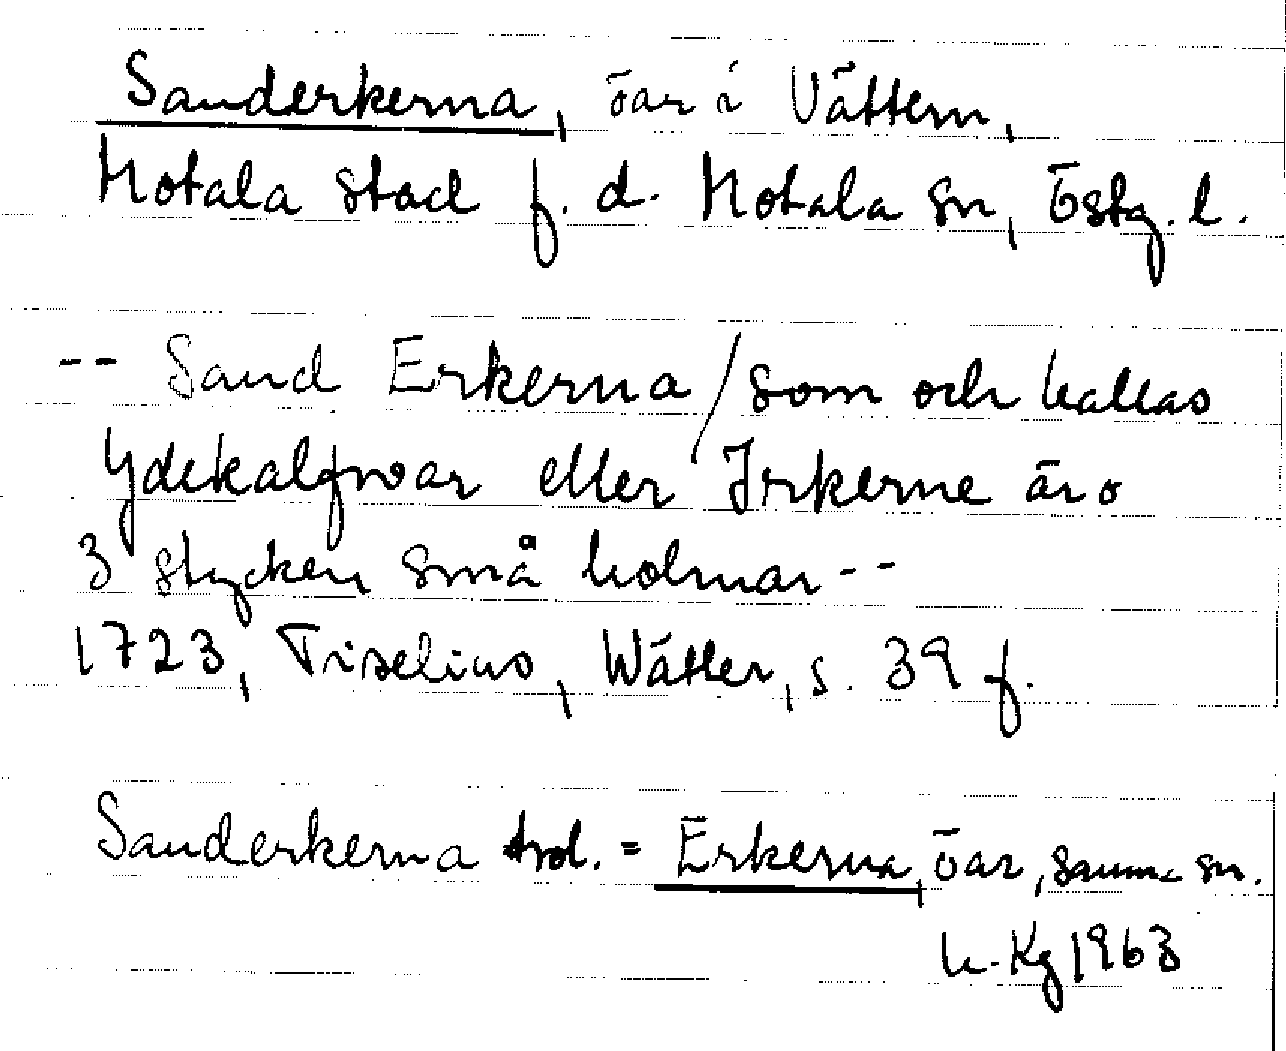 Sanderkerna, öar i Vättern,
Motala stad f. d. Motala sn, Östg. l.
-- Sand Erkerna / som och kallas
Ydekalfwar eller Irkerne äro
3 stycken små holmar --
1723, Tiselius, Wätter, s. 39 f.
Sanderkerna trol. = Erkerna, öar, samma sn.
Kg 1963